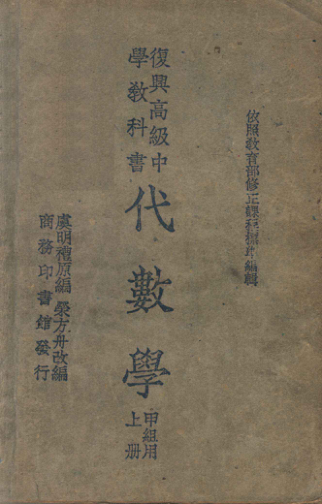 依照教育部修正課程標準編輯
復興高級中
學教科書
代數學
甲組用
上册
虞明禮原編 榮方舟改編
商務印書館發行